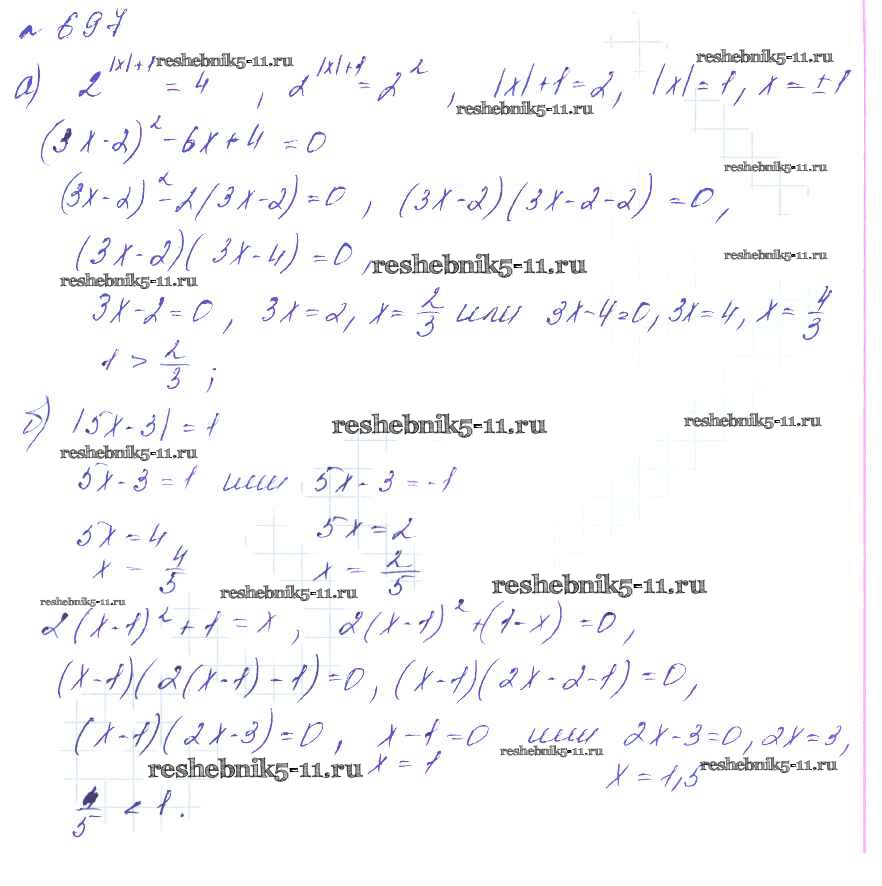 № 697
а) 2^{|x|+1} = 4, 2^{|x|+1} = 2^2, |x|+1=2, |x|=1, x=±1
reshebnik5-11.ru reshebnik5-11.ru
reshebnik5-11.ru
(3x-2)^2-6x+4=0
reshebnik5-11.ru
(3x-2)^2-2(3x-2)=0, (3x-2)(3x-2-2)=0,
(3x-2)(3x-4)=0, reshebnik5-11.ru reshebnik5-11.ru
reshebnik5-11.ru
3x-2=0, 3x=2, x=2/3 или 3x-4=0, 3x=4, x=4/3
1 > 2/3;
б) |5x-3|=1 reshebnik5-11.ru reshebnik5-11.ru
reshebnik5-11.ru
5x-3=1 или 5x-3=-1
5x=4 5x=2
x=4/5 x=2/5
reshebnik5-11.ru reshebnik5-11.ru reshebnik5-11.ru
2(x-1)^2+1=x, 2(x-1)^2+(1-x)=0,
(x-1)(2(x-1)-1)=0, (x-1)(2x-2-1)=0,
(x-1)(2x-3)=0, x-1=0 или 2x-3=0, 2x=3,
reshebnik5-11.ru
reshebnik5-11.ru x=1 x=1,5 reshebnik5-11.ru
4/5 < 1.